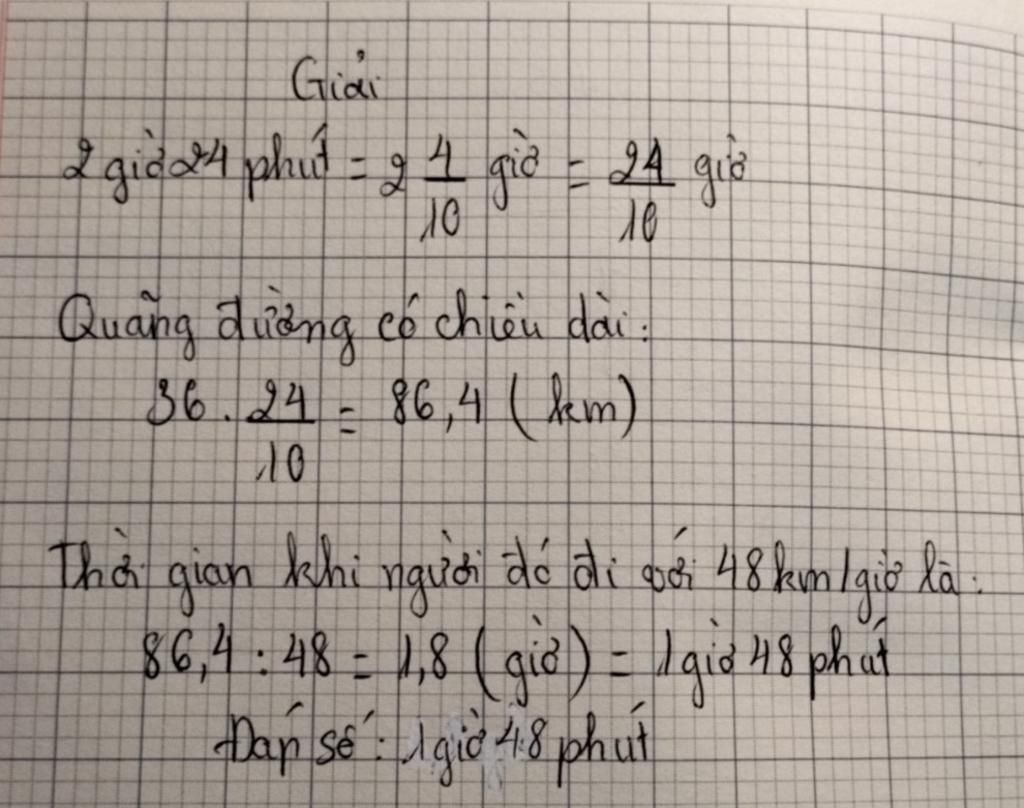 Giải
2 giờ 24 phút = 2 4/10 giờ = 24/10 giờ
Quãng đường có chiều dài:
36 . 24/10 = 86,4 (km)
Thời gian khi người đó đi với 48km/giờ là:
86,4 : 48 = 1,8 (giờ) = 1 giờ 48 phút
Đáp số: 1 giờ 48 phút